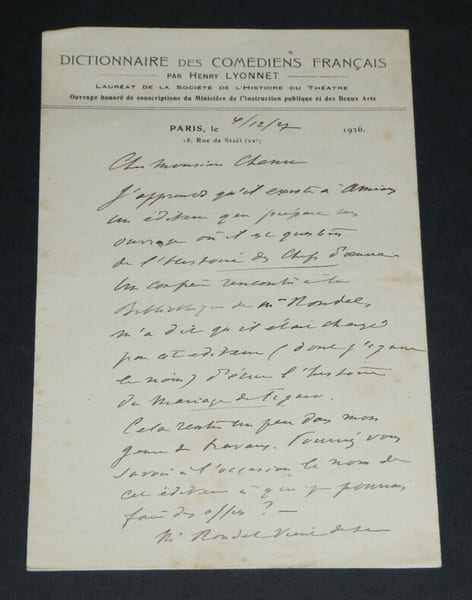 DICTIONNAIRE DES COMÉDIENS FRANÇAIS
PAR HENRY LYONNET
LAURÉAT DE LA SOCIÉTÉ DE L'HISTOIRE DU THÉATRE
Ouvrage honoré de souscriptions du Ministère de l'Instruction publique et des Beaux Arts
PARIS, le 4/12/27 1926.
18, Rue de Staël (XVe)
Cher Monsieur
J'apprends qu'il existe à Amiens
un éditeur qui prépare un
ouvrage où il est question
de l'Histoire des Chefs d'œuvre
Un confrère rencontré à la
Bibliothèque de Mr Rondel
m'a dit qu'il était chargé
par cet éditeur (dont j'ignore
le nom) d'écrire l'histoire
du Mariage de Figaro.
Cela rentre un peu dans mon
genre de travaux. Pourriez vous
savoir à l'occasion le nom de
cet éditeur à qui je pourrais
faire des offres ? —
Mr Rondel vient de